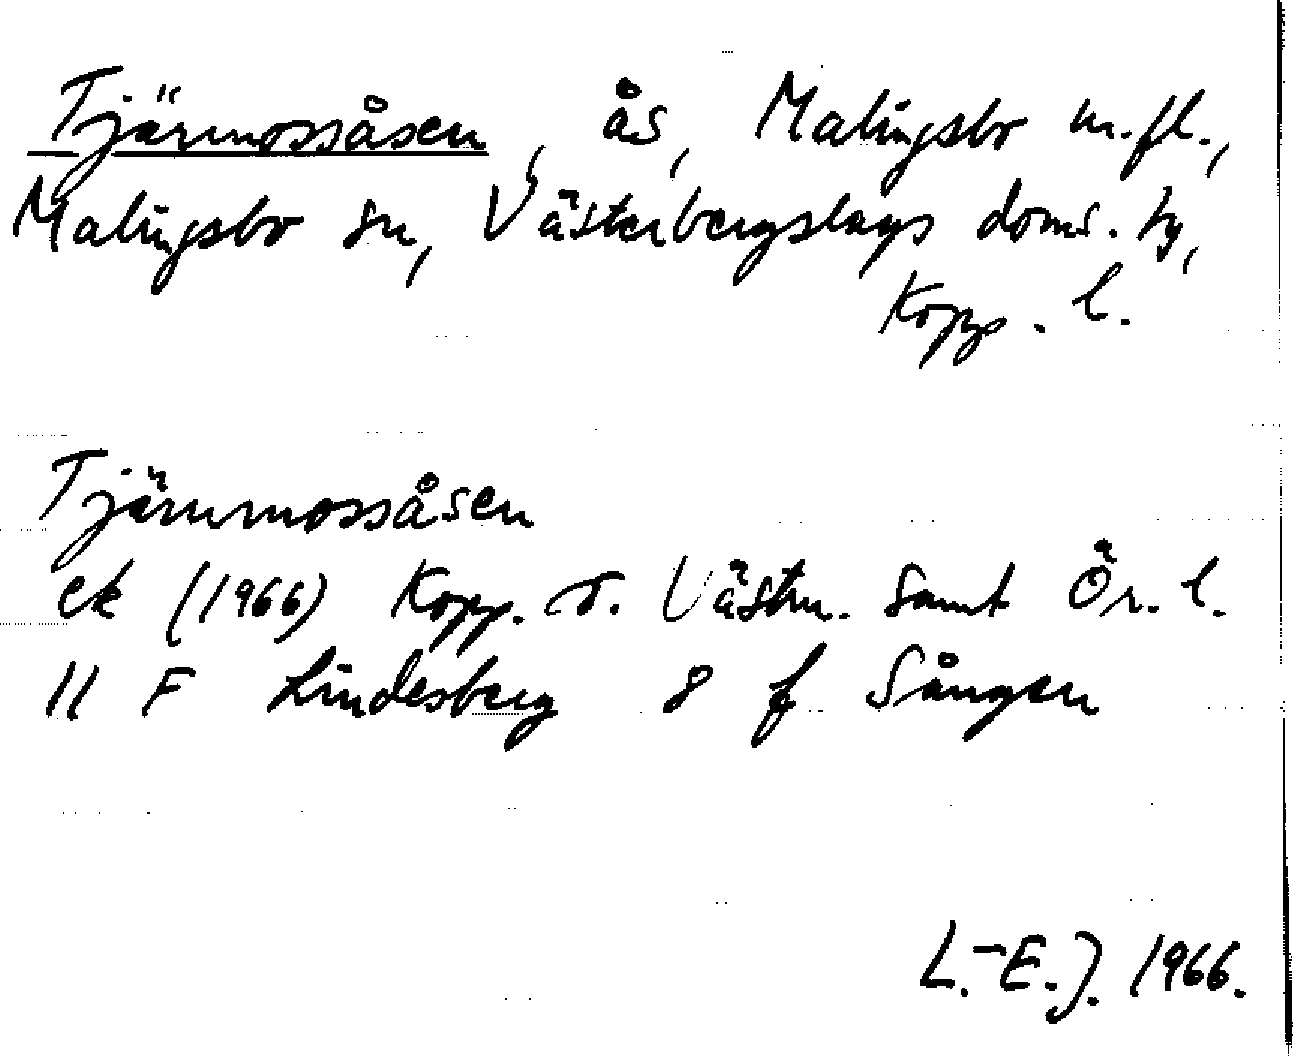 Tjärmossåsen, ås, Malingsbo m.fl.,
Malingsbo sn, Västerbergslags doms. tg,
Kopp. l.
Tjärnmossåsen
ek (1966) Kopp. o. Västm. samt Ör. l.
11 F Lindesberg 8 f Sången
L.-E.J. 1966.